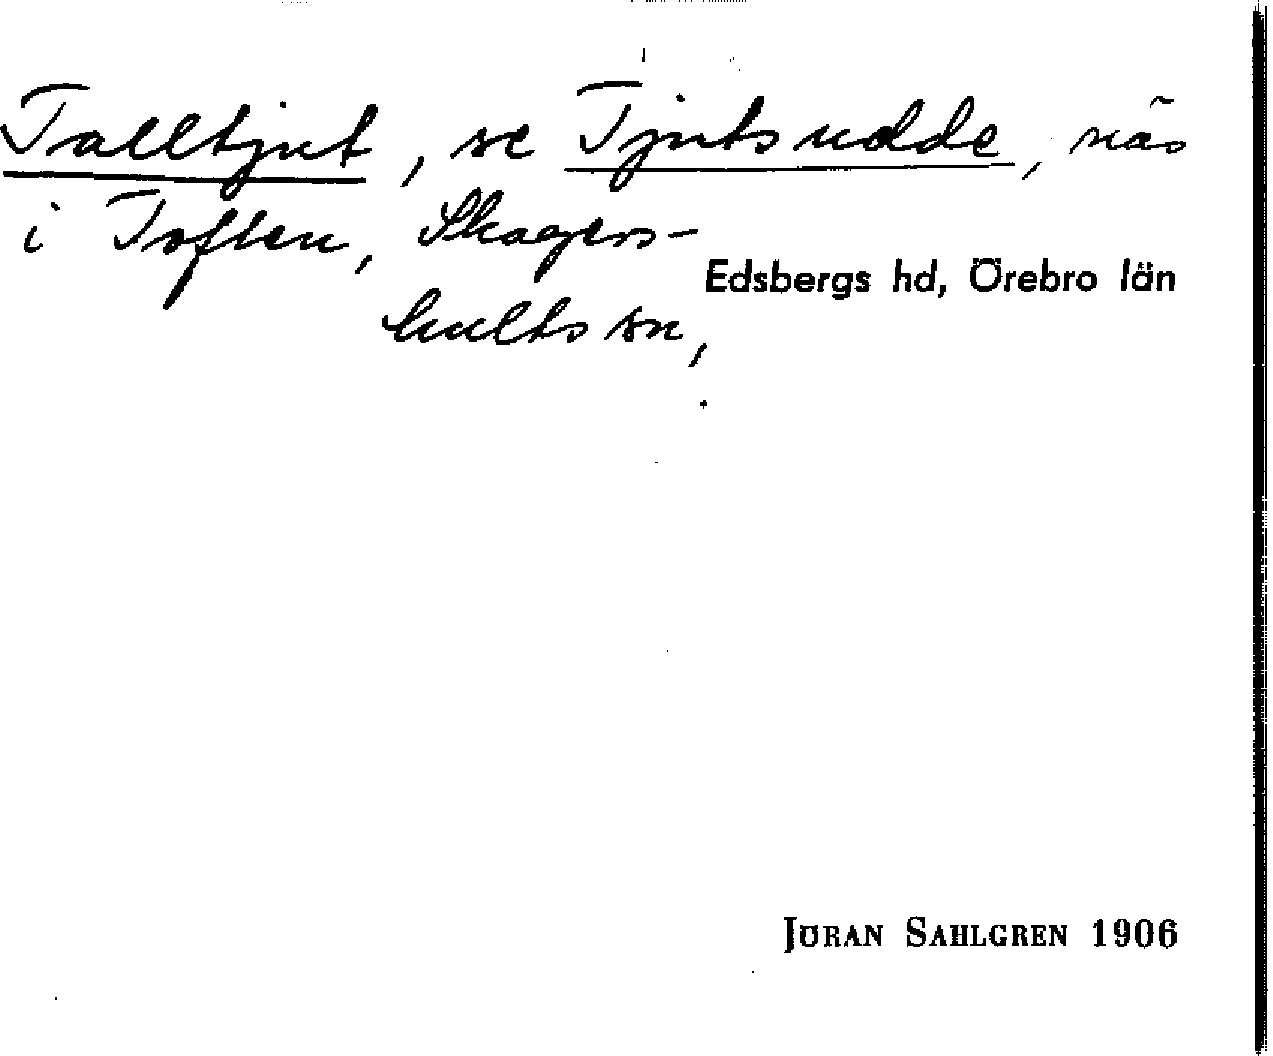 Talltjut, se Tjutsudde, näs
i Toften, Skagers-
Edsbergs hd, Örebro län
hults sn,
JÖRAN SAHLGREN 1906